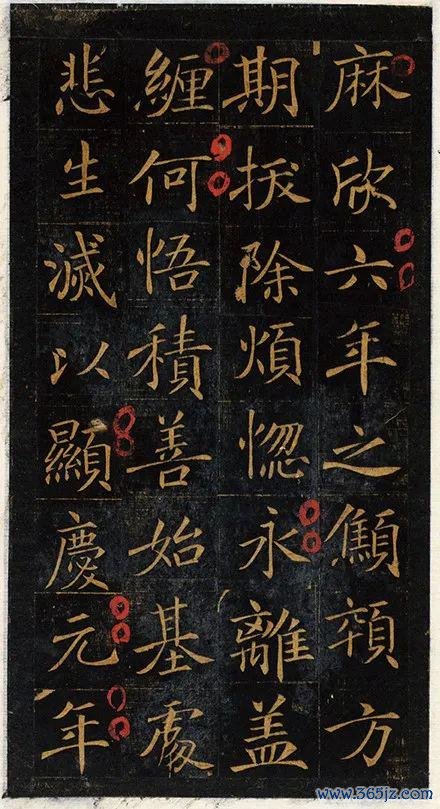 麻欣六年之顦顇方
期拔除煩惚永離盖
纏何悟積善始基處
悲生滅以顯慶元年
www.365jz.com